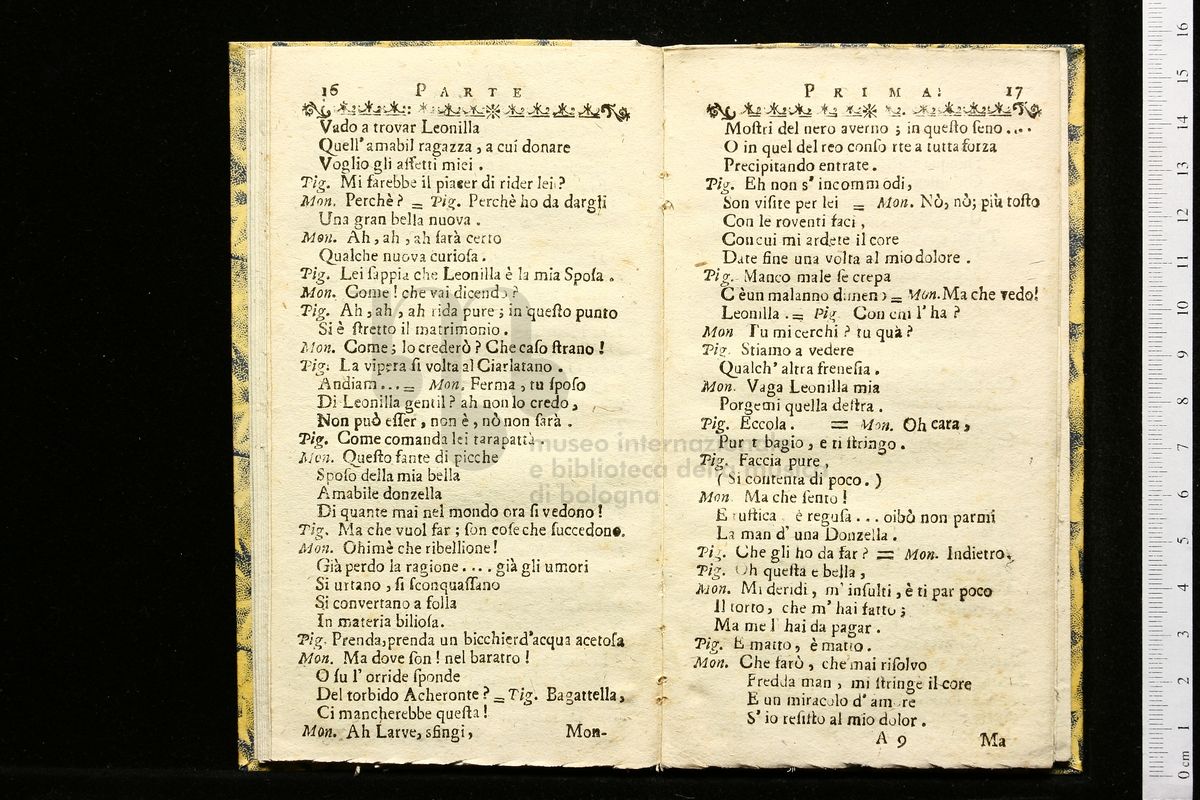 16 PARTE
Vado a trovar Leonilla
Quell' amabil ragazza, a cui donare
Voglio gli affetti miei.
Pig. Mi farebbe il piacer di rider lei?
Mon. Perchè? = Pig. Perchè ho da dargli
Una gran bella nuova.
Mon. Ah, ah, ah ſarà certo
Qualche nuova curioſa.
Pig. Lei ſappia che Leonilla è la mia Spoſa.
Mon. Come! che vai dicendo?
Pig. Ah, ah, ah rida pure; in queſto punto
Si è ſtretto il matrimonio.
Mon. Come; lo crederò? Che caſo ſtrano!
Pig. La vipera ſi volta al Ciarlatano.
Andiam... = Mon. Ferma, tu ſpoſo
Di Leonilla gentil? ah non lo credo,
Non può eſſer, non è, nò non ſarà.
Pig. Come comanda lei tarapattà.
Mon. Queſto fante di picche
Spoſo della mia bella
Amabile donzella
Di quante mai nel mondo ora ſi vedono!
Pig. Ma che vuol far; ſon coſe che ſuccedono.
Mon. Ohimè che ribellione!
Già perdo la ragione.... già gli umori
Si urtano, ſi ſconquaſſano
Si convertano a folla
In materia bilioſa.
Pig. Prenda, prenda un bicchier d'acqua acetoſa
Mon. Ma dove ſon! nel baratro!
O ſu l' orride ſponde
Del torbido Acheronte? = Pig. Bagattella,
Ci mancherebbe queſta!
Mon. Ah Larve, sfingi,
Mon-
PRIMA. 17
Moſtri del nero averno; in queſto ſeno....
O in quel del reo conſorte a tutta forza
Precipitando entrate.
Pig. Eh non s' incommodi,
Son viſite per lei = Mon. Nò, nò; più toſto
Con le roventi faci,
Con cui mi ardete il core
Date fine una volta al mio dolore.
Pig. Manco male ſe crepa
C è un malanno dimeno = Mon. Ma che vedo!
Leonilla. = Pig. Con chi l' ha?
Mon Tu mi cerchi? tu quà?
Pig. Stiamo a vedere
Qualch' altra freneſia.
Mon. Vaga Leonilla mia
Porgemi quella deſtra.
Pig. Eccola. = Mon. Oh cara,
Pur t bagio, e ti ſtringo.
Pig. Faccia pure,
(Si contenta di poco.)
Mon Ma che ſento!
E ruſtica è reguſa... oibò non parmi
La man d' una Donzella.
Pig. Che gli ho da far? = Mon. Indietro,
Pig. Oh queſta e bella,
Mon. Mi deridi, m' inſulti, è ti par poco
Il torto, che m' hai fatto;
Ma me l' hai da pagar.
Pig. E matto, è matto.
Mon. Che farò, che mai riſolvo
Fredda man, mi ſtringe il core
E un miracolo d' amore
S' io reſiſto al mio dolor.
A 9 Ma
museo internazionale
e biblioteca della musica
di bologna
0 cm 1 2 3 4 5 6 7 8 9 10 11 12 13 14 15 16